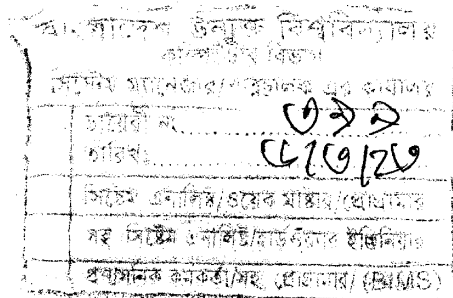 বাংলাদেশ উন্মুক্ত বিশ্ববিদ্যালয়
কম্পিউটার বিভাগ
সিস্টেম ম্যানেজার/ এর কার্যালয়
ডায়েরী নং ৩৯৯
তারিখঃ
সিস্টেম এনালিস্ট/ওয়েব মাষ্টার/প্রোগ্রামার
সহ সিস্টেম এনালিস্ট/হার্ডওয়্যার ইঞ্জিনিয়ার
প্রশাসনিক কর্মকর্তা/সহ প্রোগ্রামার/ (BIMS)